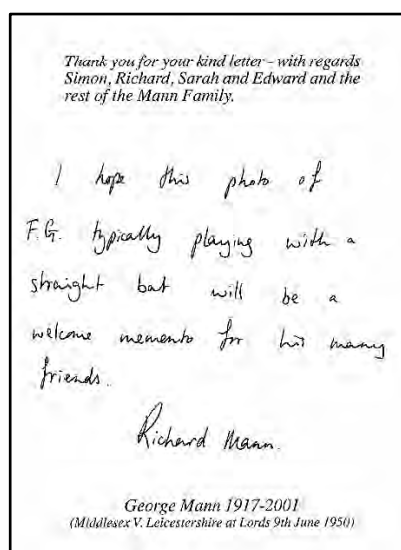 Thank you for your kind letter – with regards
Simon, Richard, Sarah and Edward and the
rest of the Mann Family.
I hope this photo of
F.G. typically playing with a
straight bat will be a
welcome memento for his many
friends.
Richard Mann.
George Mann 1917-2001
(Middlesex V. Leicestershire at Lords 9th June 1950)